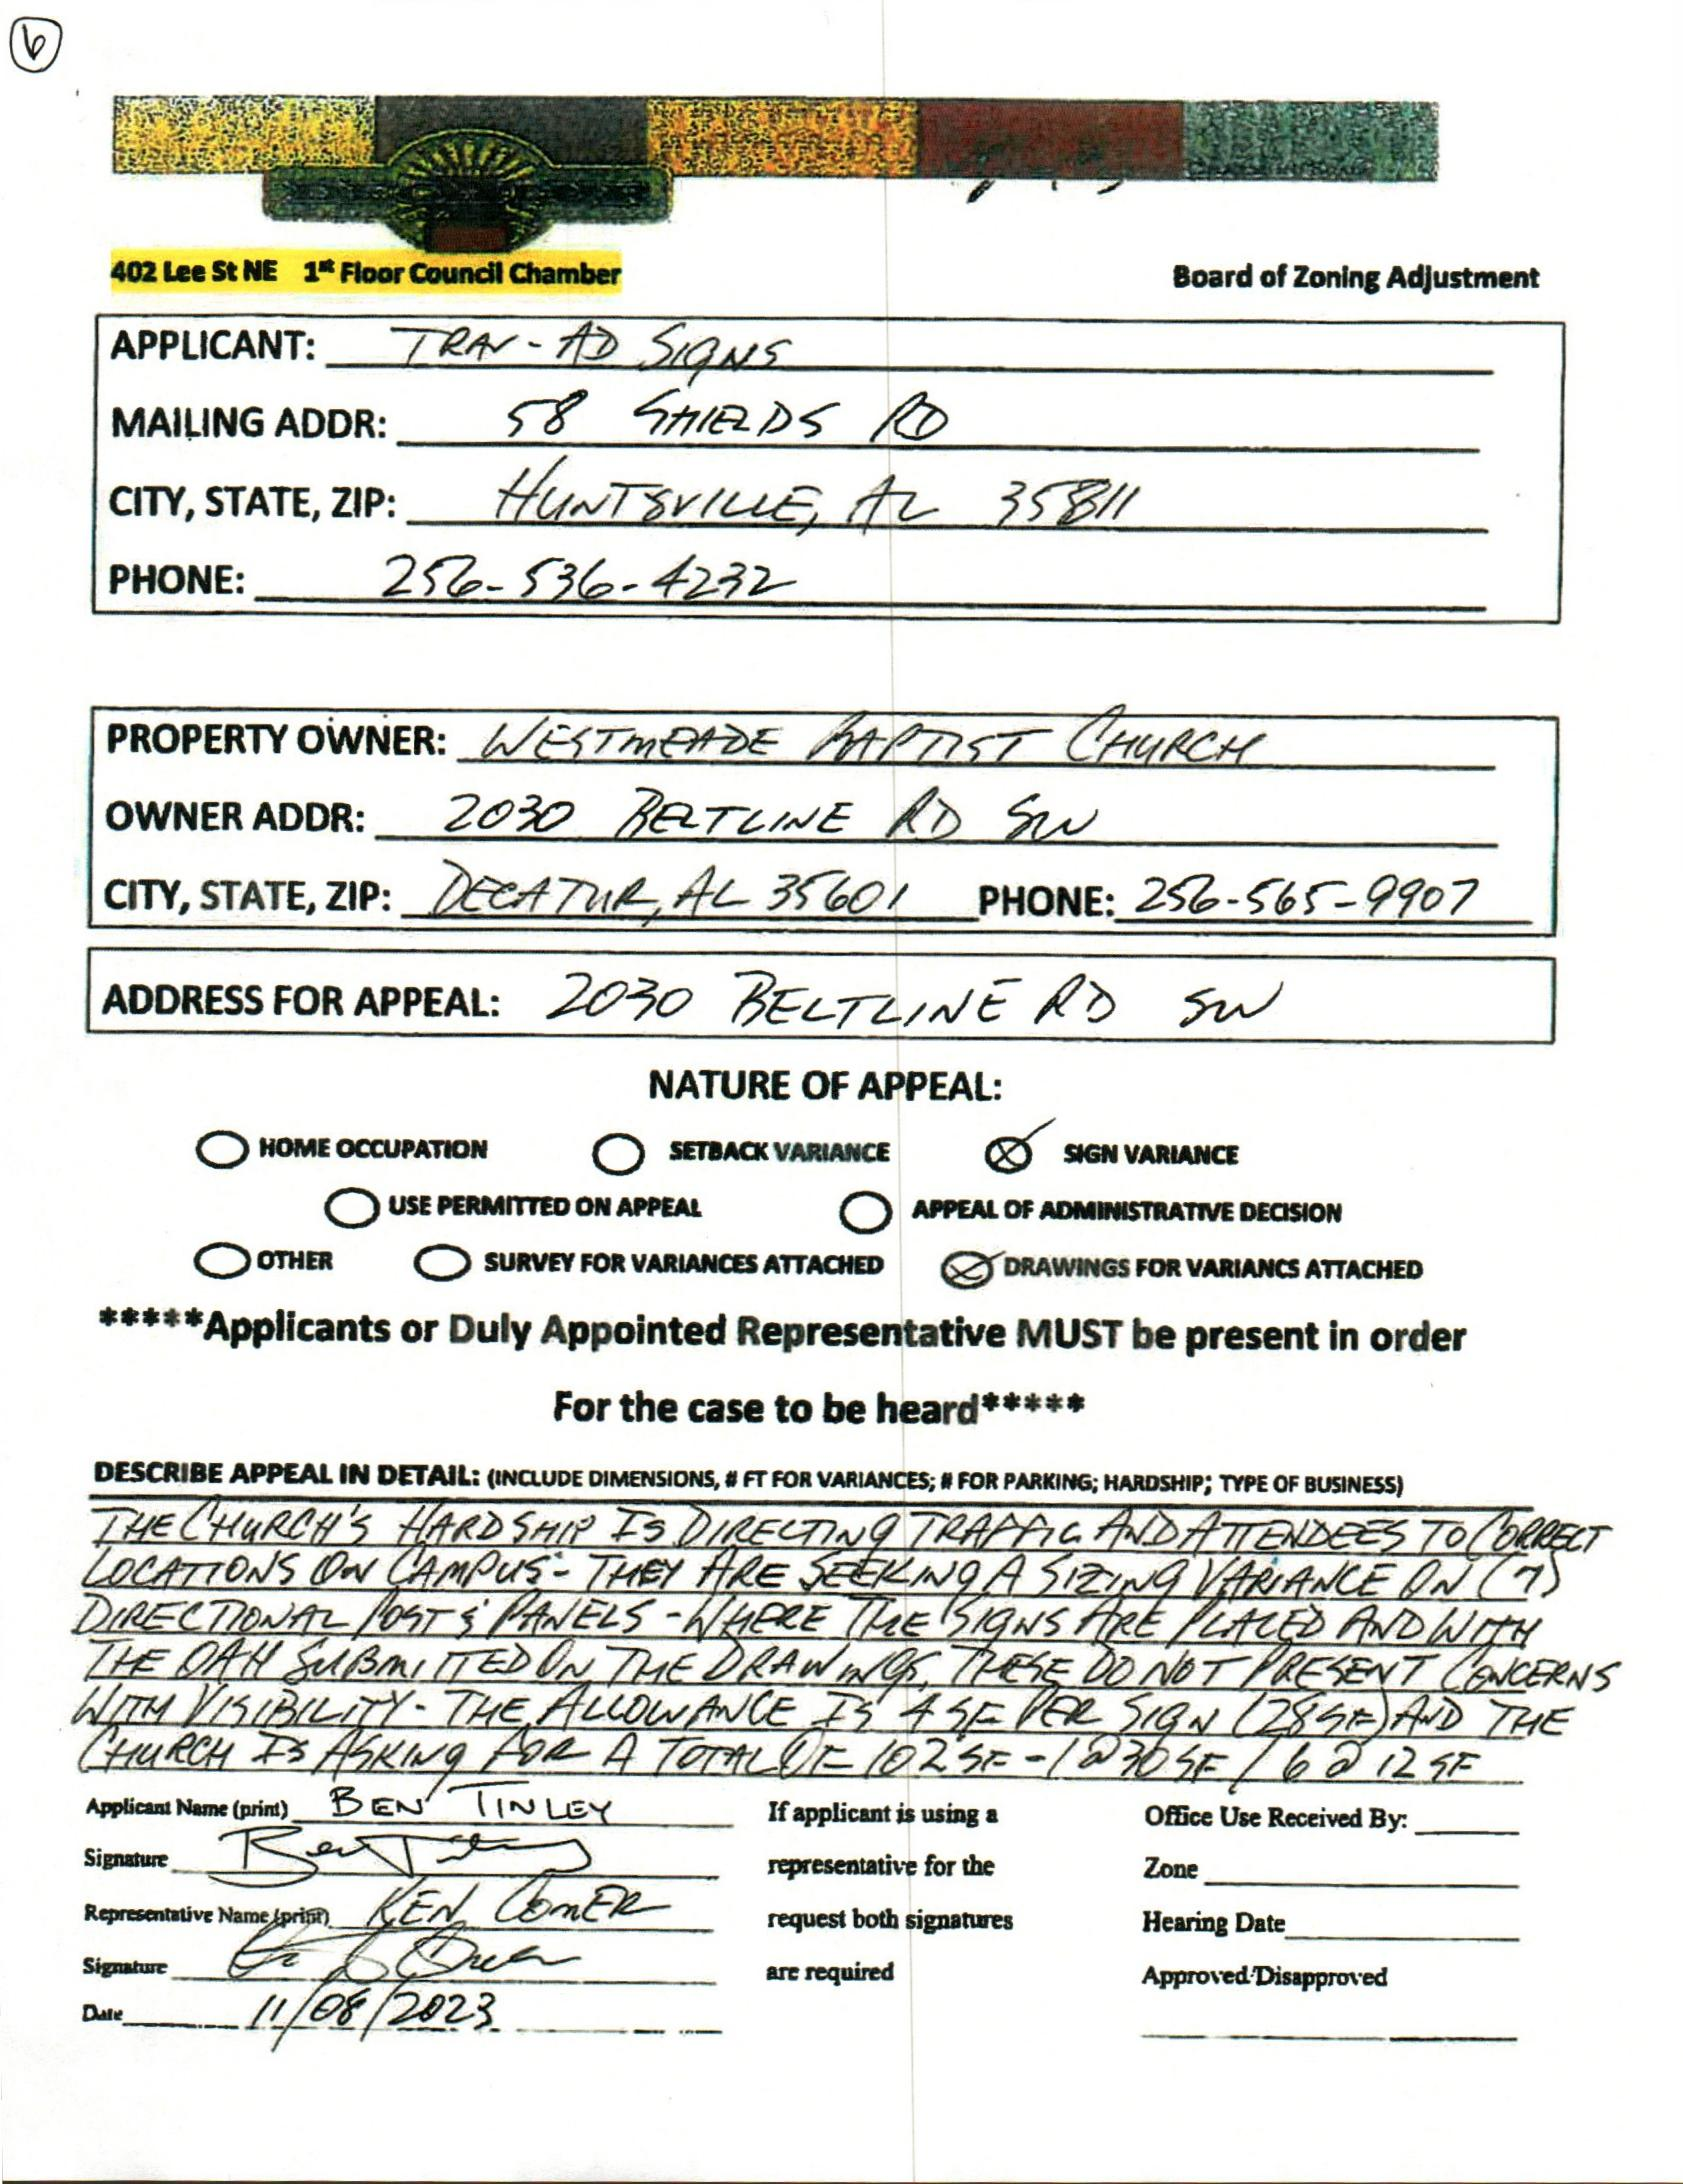 6
402 Lee St NE 1st Floor Council Chamber
Board of Zoning Adjustment
APPLICANT: TRAV-AD SIGNS
MAILING ADDR: 58 SHIELDS RD
CITY, STATE, ZIP: HUNTSVILLE, AL 35811
PHONE: 256-536-4232
PROPERTY OWNER: WESTMEADE BAPTIST CHURCH
OWNER ADDR: 2030 BELTLINE RD SW
CITY, STATE, ZIP: DECATUR, AL 35601 PHONE: 256-565-9907
ADDRESS FOR APPEAL: 2030 BELTLINE RD SW
NATURE OF APPEAL:
HOME OCCUPATION SETBACK VARIANCE SIGN VARIANCE
USE PERMITTED ON APPEAL APPEAL OF ADMINISTRATIVE DECISION
OTHER SURVEY FOR VARIANCES ATTACHED DRAWINGS FOR VARIANCS ATTACHED
*****Applicants or Duly Appointed Representative MUST be present in order
For the case to be heard*****
DESCRIBE APPEAL IN DETAIL: (INCLUDE DIMENSIONS, # FT FOR VARIANCES; # FOR PARKING; HARDSHIP; TYPE OF BUSINESS)
THE CHURCH'S HARDSHIP IS DIRECTING TRAFFIC AND ATTENDEES TO CORRECT
LOCATIONS ON CAMPUS - THEY ARE SEEKING A SIZING VARIANCE ON (7)
DIRECTIONAL POST & PANELS - WHERE THE SIGNS ARE PLACED AND WITH
THE OAH SUBMITTED ON THE DRAWINGS, THESE DO NOT PRESENT CONCERNS
WITH VISIBILITY - THE ALLOWANCE IS 4 SF PER SIGN (28 SF) AND THE
CHURCH IS ASKING FOR A TOTAL OF 102 SF - 1 @ 30 SF / 6 @ 12 SF
Applicant Name (print) BEN TINLEY If applicant is using a Office Use Received By:
Signature Ben Tinley representative for the Zone
Representative Name (print) KEN COMER request both signatures Hearing Date
Signature are required Approved/Disapproved
Date 11/08/2023